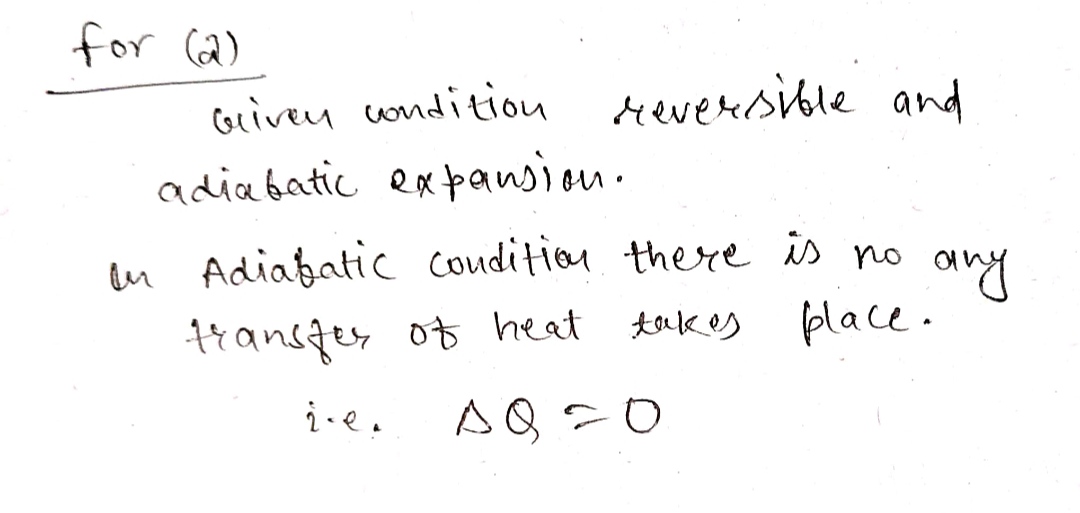 for (a)
Given condition reversible and
adiabatic expansion.
In Adiabatic condition there is no any
transfer of heat takes place.
i.e. ΔQ = 0